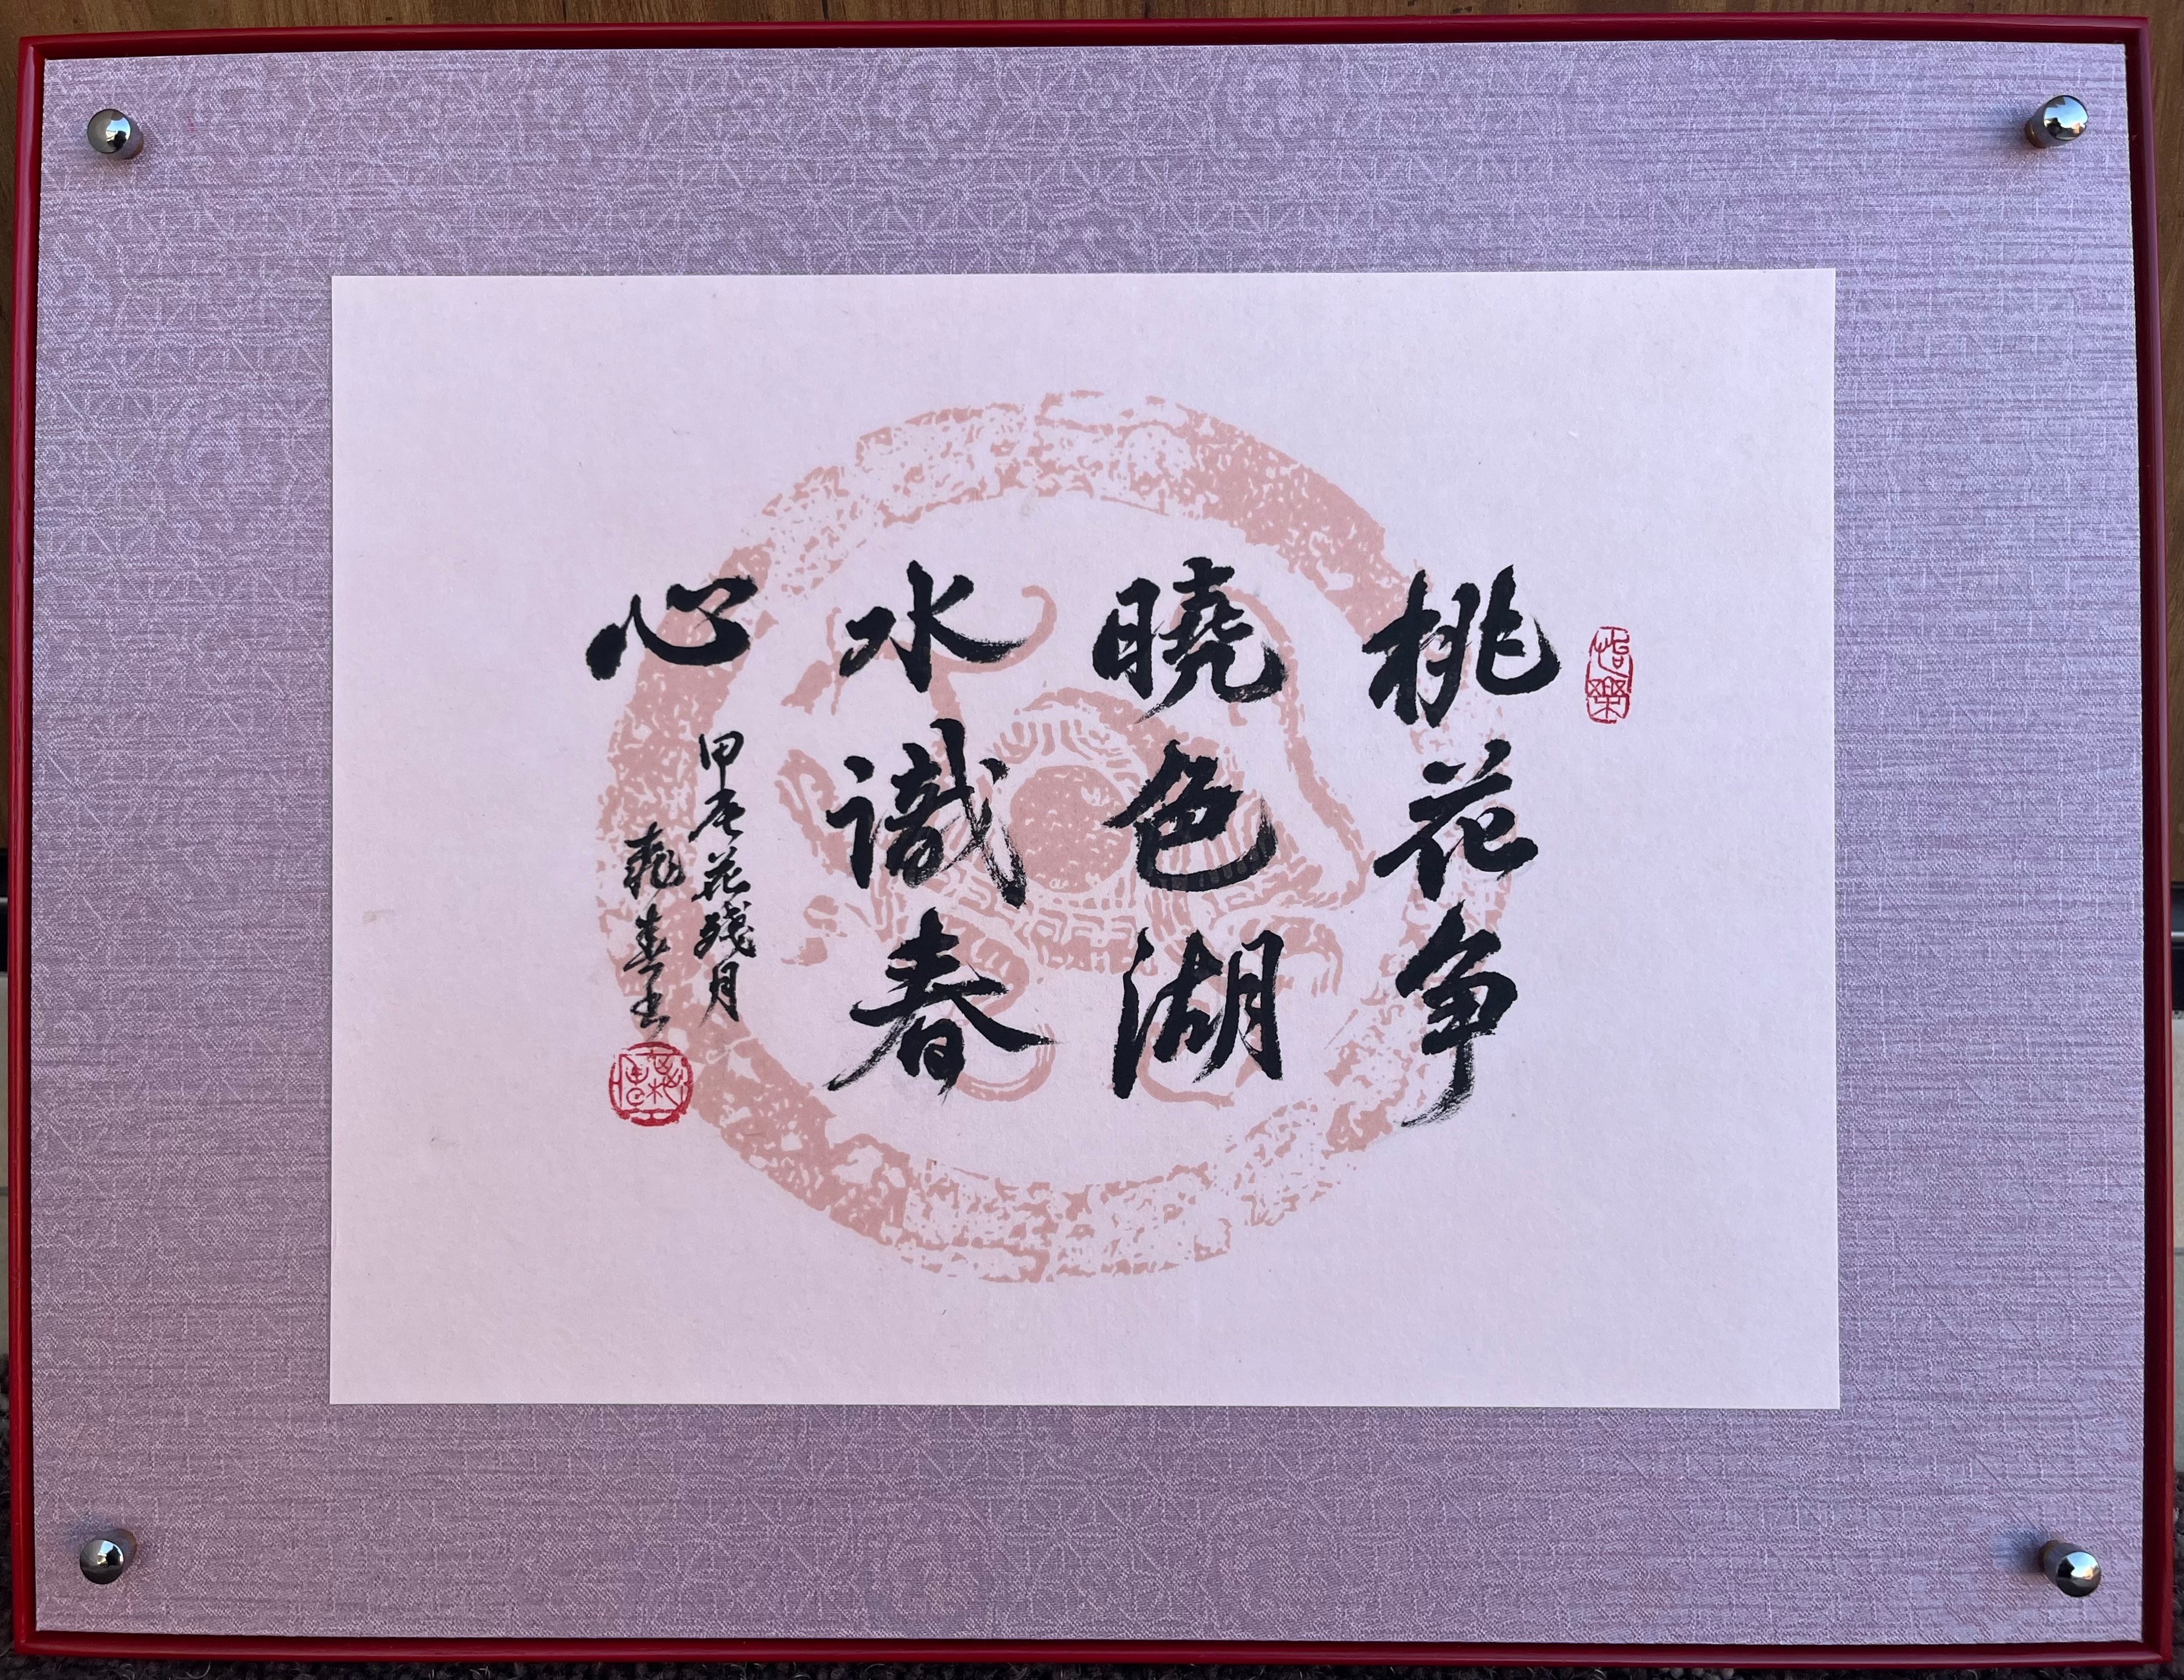 桃花争
曉色湖
水識春
心
甲辰花残月